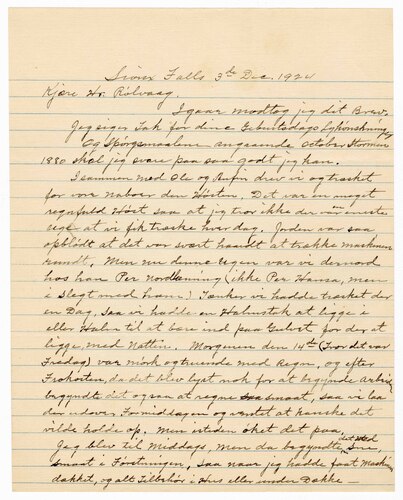 Sioux Falls 3de Dec. 1924
Kjære Hr. Rölvaag.
Igaar modtog jeg dit Brev.
Jeg siger Tak for dine Geburtsdags Lykönskning
Og Spörgsmaalene angaaende October Stormen
1880 skal jeg svare paa saa godt jeg kan.
I sammen med Ole og drev vi og træsket
for vore naboer den Hösten. Det var en meget
regnfuld Höst saa at jeg tror ikke der var eneste
uge at vi fik træske hver dag. Jorden var saa
opblödt at det var svært haardt at trække maskinen
rundt. Men nu denne Ugen var vi der nord
hos han Per Nordlænning (ikke Per Hansa, men
i Slegt med ham) Tænker vi hadde træsket der
en Dag. Saa vi hadde en Halmstak at ligge i
eller Halm til at bære ind paa Gulvet for der at
ligge med Natten. Morgenen den 14de (Tror det var
Fredag) var mörk og truende med Regn, og efter
Frokosten, da det blev lyst nok for at begynde Arbeide
begyndte det ogsaa at regne smaat, saa vi laa
der udover Formiddagen og ventet at kanske det
vilde holde op. Men isteden öket det paa,
Jeg blev til Middags, men da begyndte det med Sne
smaat i Förstningen, saa naar jeg hadde faat Maskin
dækket, og alt Tilbehör i Hus eller under Dække —